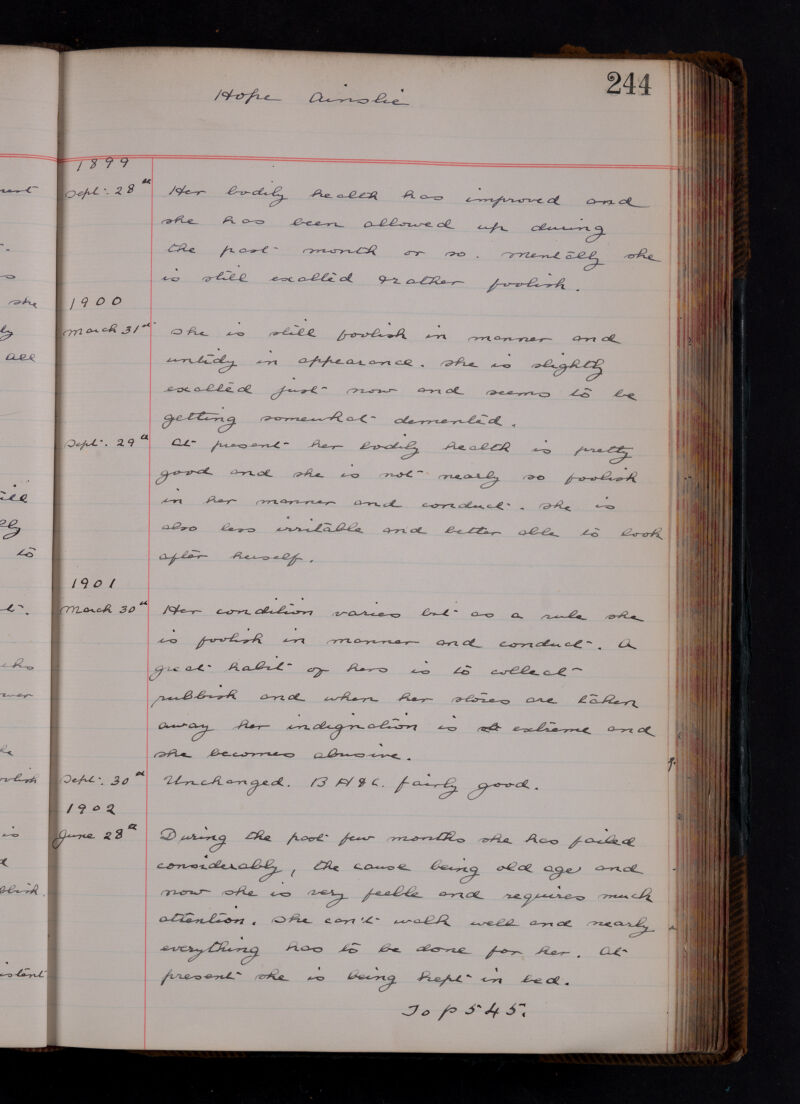 244
Hope Ainslie
1899
Sept: 28th Her bodily health has improved and
she has been allowed up during
the past month or so. Mentally she
is still exalted & rather foolish.
1900
March 31st She is still foolish in manner and
untidy in appearance. She is slightly
exalted just now and seems to be
getting somewhat demented.
Sept:. 29th At present her bodily health is pretty
good and she is not nearly so foolish
in her manner and conduct. She is
also less irritable and better able to look
after herself.
1901
March 30th Her condition varies but as a rule she
is foolish in manner and conduct. A
great habit of hers is to collect
rubbish and when her stores are taken
away her indignation is extreme and
she becomes abusive.
Sept:. 30th Unchanged. B H & C. fairly good.
1902
June 28th During the past few months she has failed
considerably, the cause being old age and
now she is very feeble and requires much
attention. She can't walk well and nearly
everything has to be done for her. At
present she is being kept in bed.
To p 545.